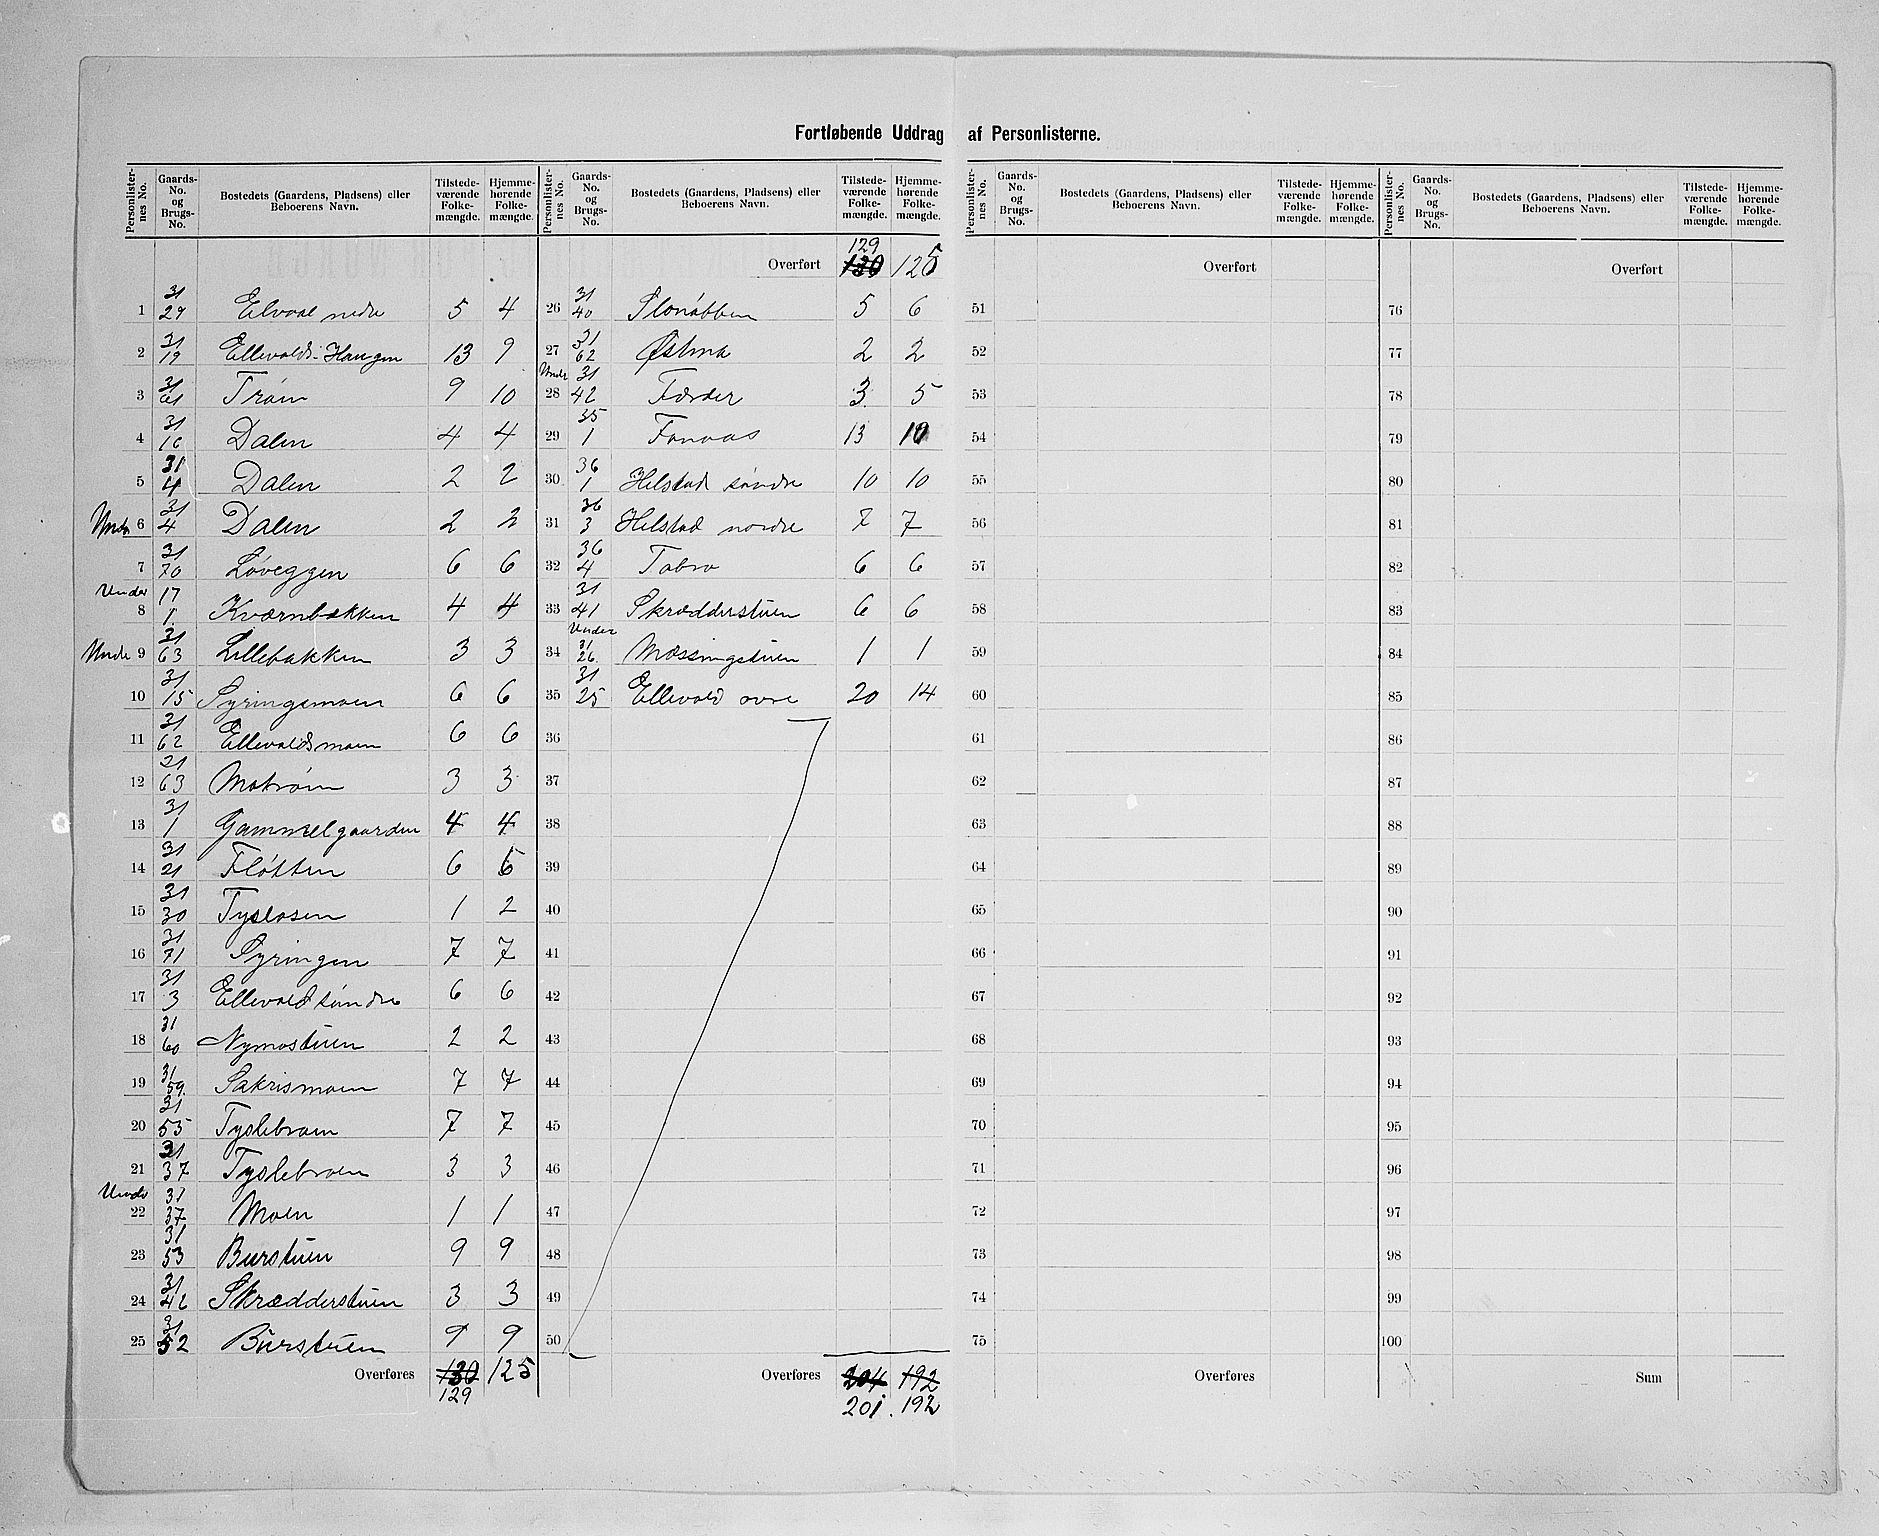 Fortløbende Uddrag af Personlisterne.
Personlisternes No. | Gaards-No. og Brugs-No. | Bostedets (Gaardens, Pladsens) eller Beboerens Navn. | Tilstedeværende Folkemængde. | Hjemmehørende Folkemængde.
1 31/29 Elvaal nedre 5 4
2 31/19 Ellevolds-Haugen 13 9
3 31/61 Trøen 9 10
4 31/16 Dalen 4 4
5 31/4 Dalen 2 2
Under 6 31/4 Dalen 2 2
7 31/70 Løveggen 6 6
Under 8 17/1 Kværnbækken 4 4
Under 9 31/63 Lillebakken 3 3
10 31/15 Syringsmoen 6 6
11 31/62 Ellevoldsmoen 6 6
12 31/63 Motrøen 3 3
13 31/1 Gammelgaarden 4 4
14 31/21 Fløtten 6 6
15 31/30 Tyslosen 1 2
16 31/71 Syringen 7 7
17 31/3 Ellevold søndre 6 6
18 31/60 Nymostuen 2 2
19 31/59 Sakrismoen 7 7
20 31/55 Tyslebroen 7 7
21 31/37 Tyslebroen 3 3
Under 22 31/37 Moen 1 1
23 31/53 Burstuen 9 9
24 31/42 Skrædderstuen 3 3
25 31/52 Burstuen 9 9
Overføres 130 125
129
Personlisternes No. | Gaards-No. og Brugs-No. | Bostedets (Gaardens, Pladsens) eller Beboerens Navn. | Tilstedeværende Folkemængde. | Hjemmehørende Folkemængde.
129
Overført 130 125
26 31/40 Slonøbben 5 6
27 31/62 Østmo 2 2
Under 28 31/42 Færder 3 5
29 35/1 Fonaas 13 10
30 36/1 Helstad søndre 10 10
31 36/3 Helstad nordre 7 7
32 36/4 Tobro 6 6
33 31/41 Skrædderstuen 6 6
Under
34 31/26 Mæssingstuen 1 1
35 31/25 Ellevold øvre 20 14
36
37
38
39
40
41
42
43
44
45
46
47
48
49
50
Overføres 204 192
201. 192
Personlisternes No. | Gaards-No. og Brugs-No. | Bostedets (Gaardens, Pladsens) eller Beboerens Navn. | Tilstedeværende Folkemængde. | Hjemmehørende Folkemængde.
Overført
51
52
53
54
55
56
57
58
59
60
61
62
63
64
65
66
67
68
69
70
71
72
73
74
75
Overføres
Personlisternes No. | Gaards-No. og Brugs-No. | Bostedets (Gaardens, Pladsens) eller Beboerens Navn. | Tilstedeværende Folkemængde. | Hjemmehørende Folkemængde.
Overført
76
77
78
79
80
81
82
83
84
85
86
87
88
89
90
91
92
93
94
95
96
97
98
99
100
Sum